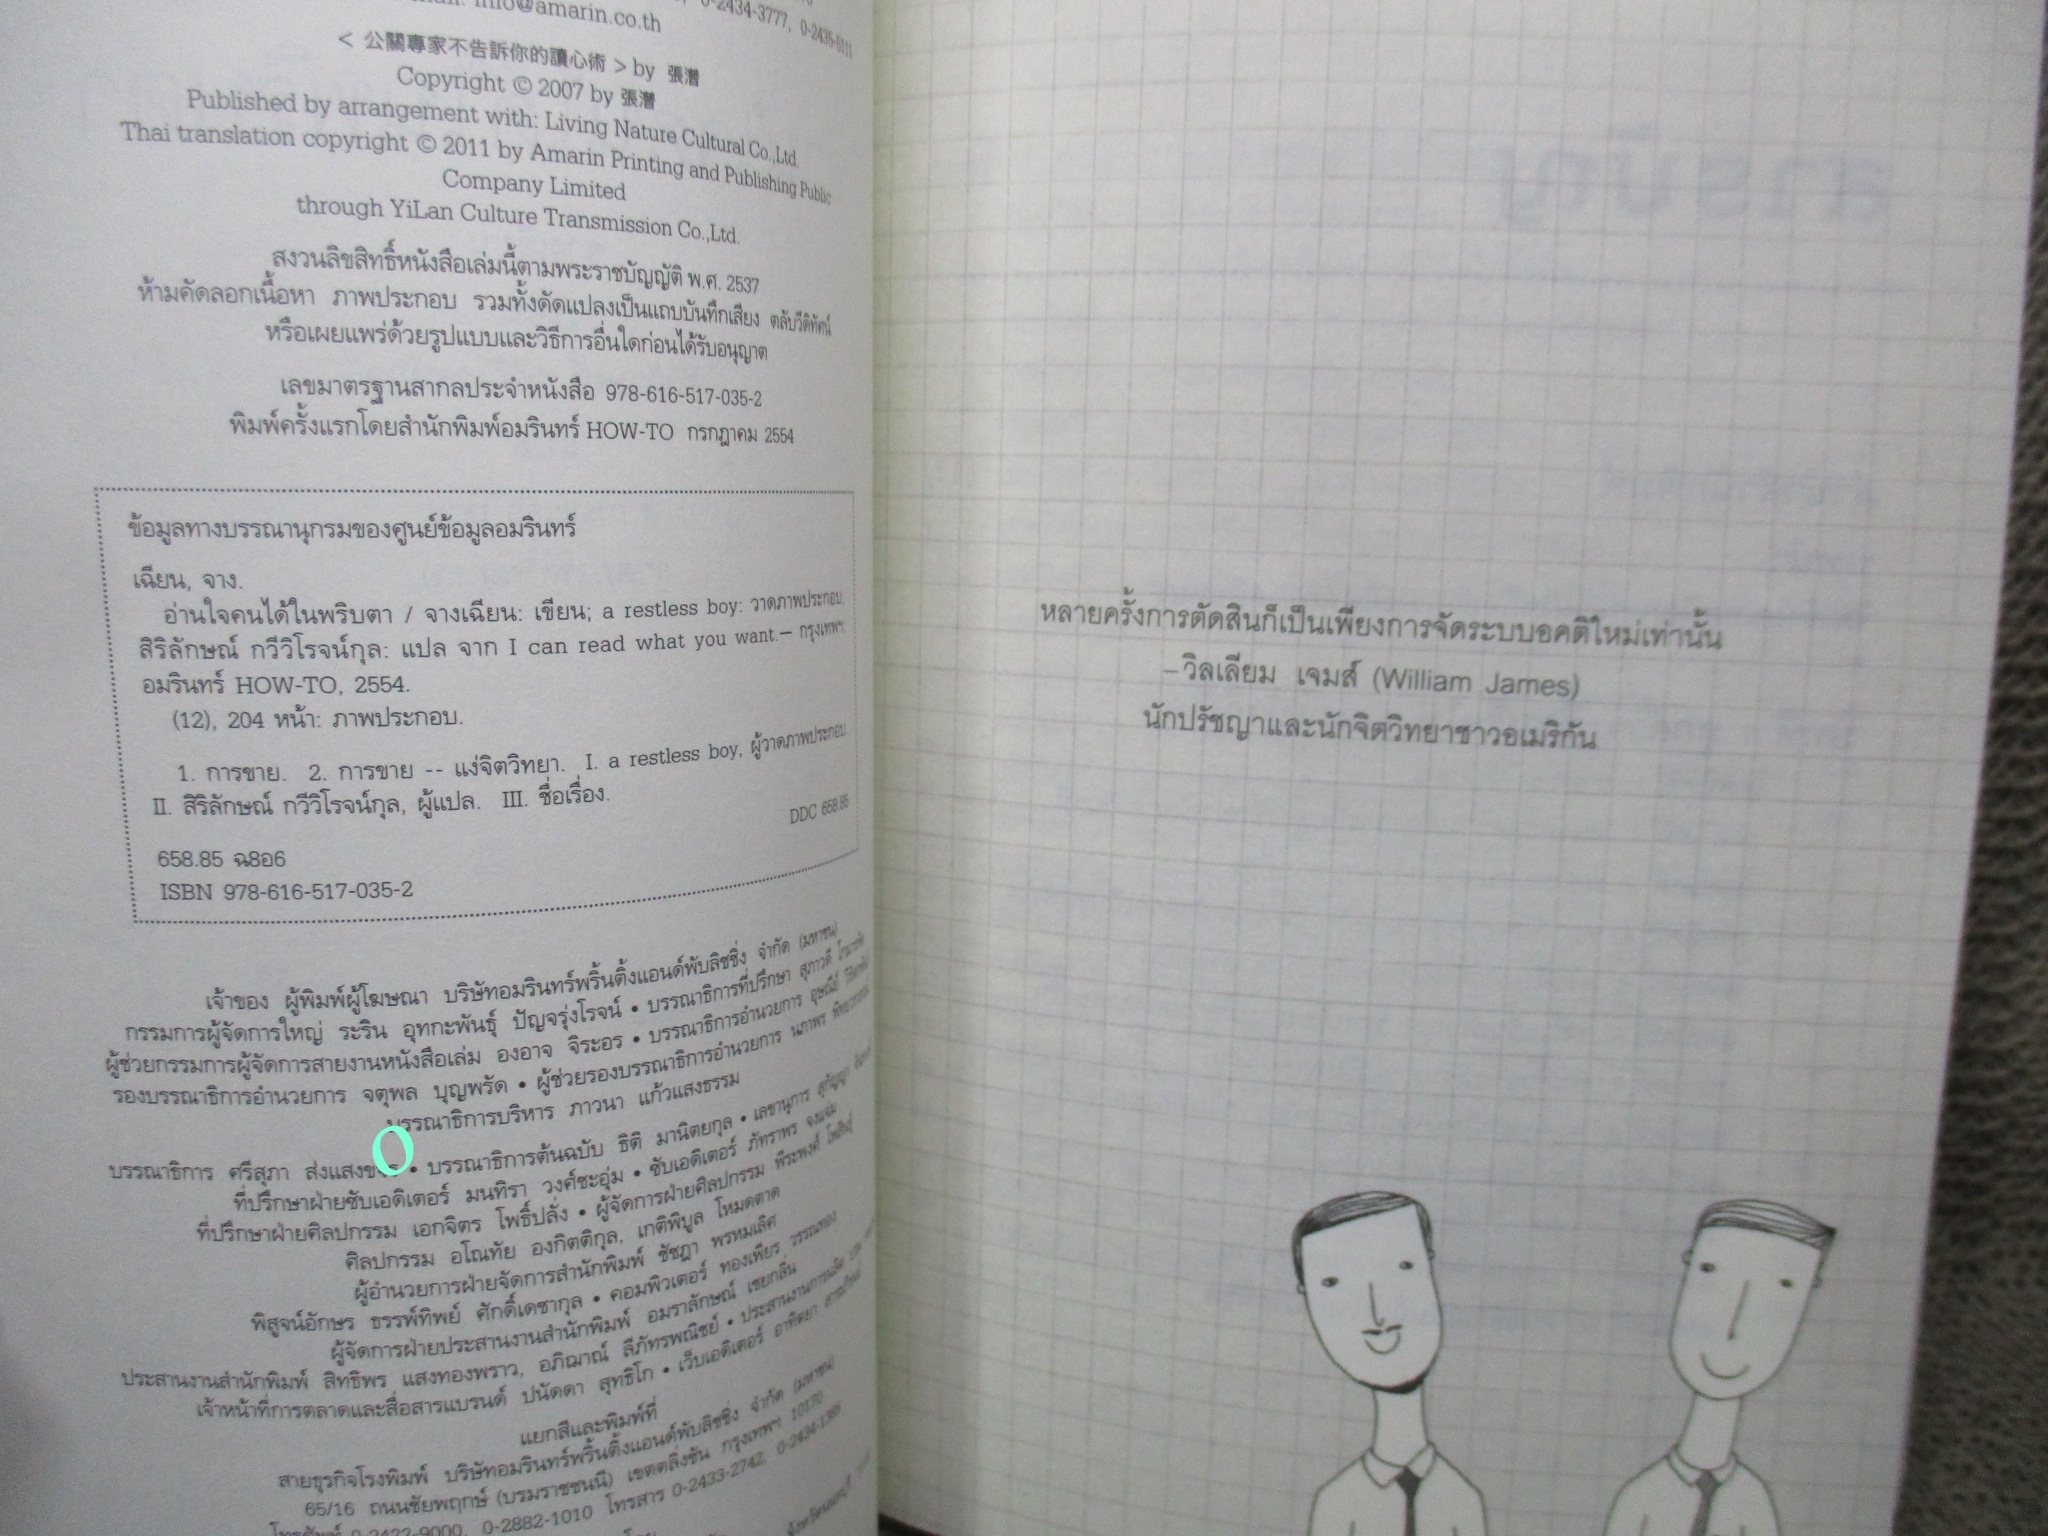 info@amarin.co.th
0-2434-3777, 0-2435-5111
< 公關專家不告訴你的讀心術 > by 張潛
Copyright © 2007 by 張潛
Published by arrangement with: Living Nature Cultural Co.,Ltd.
Thai translation copyright © 2011 by Amarin Printing and Publishing Public
Company Limited
through YiLan Culture Transmission Co.,Ltd.
สงวนลิขสิทธิ์หนังสือเล่มนี้ตามพระราชบัญญัติ พ.ศ. 2537
ห้ามคัดลอกเนื้อหา ภาพประกอบ รวมทั้งดัดแปลงเป็นแถบบันทึกเสียง ตลับวีดิทัศน์
หรือเผยแพร่ด้วยรูปแบบและวิธีการอื่นใดก่อนได้รับอนุญาต
เลขมาตรฐานสากลประจำหนังสือ 978-616-517-035-2
พิมพ์ครั้งแรกโดยสำนักพิมพ์อมรินทร์ HOW-TO กรกฎาคม 2554
ข้อมูลทางบรรณานุกรมของศูนย์ข้อมูลอมรินทร์
เฉียน, จาง.
อ่านใจคนได้ในพริบตา / จางเฉียน: เขียน; a restless boy: วาดภาพประกอบ;
สิริลักษณ์ กวีวิโรจน์กุล: แปล จาก I can read what you want.– กรุงเทพฯ:
อมรินทร์ HOW-TO, 2554.
(12), 204 หน้า: ภาพประกอบ.
1. การขาย. 2. การขาย -- แง่จิตวิทยา. I. a restless boy, ผู้วาดภาพประกอบ.
II. สิริลักษณ์ กวีวิโรจน์กุล, ผู้แปล. III. ชื่อเรื่อง.
DDC 658.85
658.85 ฉ8อ6
ISBN 978-616-517-035-2
เจ้าของ ผู้พิมพ์ผู้โฆษณา บริษัทอมรินทร์พริ้นติ้งแอนด์พับลิชชิ่ง จำกัด (มหาชน)
กรรมการผู้จัดการใหญ่ ระริน อุทกะพันธุ์ ปัญจรุ่งโรจน์ • บรรณาธิการที่ปรึกษา สุภาวดี
ผู้ช่วยกรรมการผู้จัดการสายงานหนังสือเล่ม องอาจ จิระอร • บรรณาธิการอำนวยการ อุษณีย์
รองบรรณาธิการอำนวยการ จตุพล บุญพรัด • ผู้ช่วยรองบรรณาธิการอำนวยการ นภาพร
บรรณาธิการบริหาร ภาวนา แก้วแสงธรรม
บรรณาธิการ ศรีสุภา • บรรณาธิการต้นฉบับ ธิติ มานิตยกุล • เลขานุการ สุกัญญา
ที่ปรึกษาฝ่ายซับเอดิเตอร์ มนทิรา วงศ์ชะอุ่ม • ซับเอดิเตอร์ ภัทราพร จงแจ่ม
ที่ปรึกษาฝ่ายศิลปกรรม เอกจิตร โพธิ์ปลั่ง • ผู้จัดการฝ่ายศิลปกรรม พีระพงศ์ โพสินธุ์
ศิลปกรรม อโณทัย องกิตติกุล, เกติพิบูล โหมดตาด
ผู้อำนวยการฝ่ายจัดการสำนักพิมพ์ ชัชฎา พรหมเลิศ
พิสูจน์อักษร ธรรพ์ทิพย์ ศักดิ์เดชากุล • คอมพิวเตอร์ ทองเพียร วรรณทอง
ผู้จัดการฝ่ายประสานงานสำนักพิมพ์ อมราลักษณ์ เชยกลิ่น
ประสานงานสำนักพิมพ์ สิทธิพร แสงทองพราว, อภิฌาณ์ ลีภัทรพณิชย์ • ประสานงานการผลิต
เจ้าหน้าที่การตลาดและสื่อสารแบรนด์ ปนัดดา สุทธิโก • เว็บเอดิเตอร์ อาทิตยา
แยกสีและพิมพ์ที่
สายธุรกิจโรงพิมพ์ บริษัทอมรินทร์พริ้นติ้งแอนด์พับลิชชิ่ง จำกัด (มหาชน)
65/16 ถนนชัยพฤกษ์ (บรมราชชนนี) เขตตลิ่งชัน กรุงเทพฯ 10170
โทรศัพท์ 0-2422-9000, 0-2882-1010 โทรสาร 0-2433-2742, 0-2434-1385
หลายครั้งการตัดสินก็เป็นเพียงการจัดระบบอคติใหม่เท่านั้น
–วิลเลียม เจมส์ (William James)
นักปรัชญาและนักจิตวิทยาชาวอเมริกัน